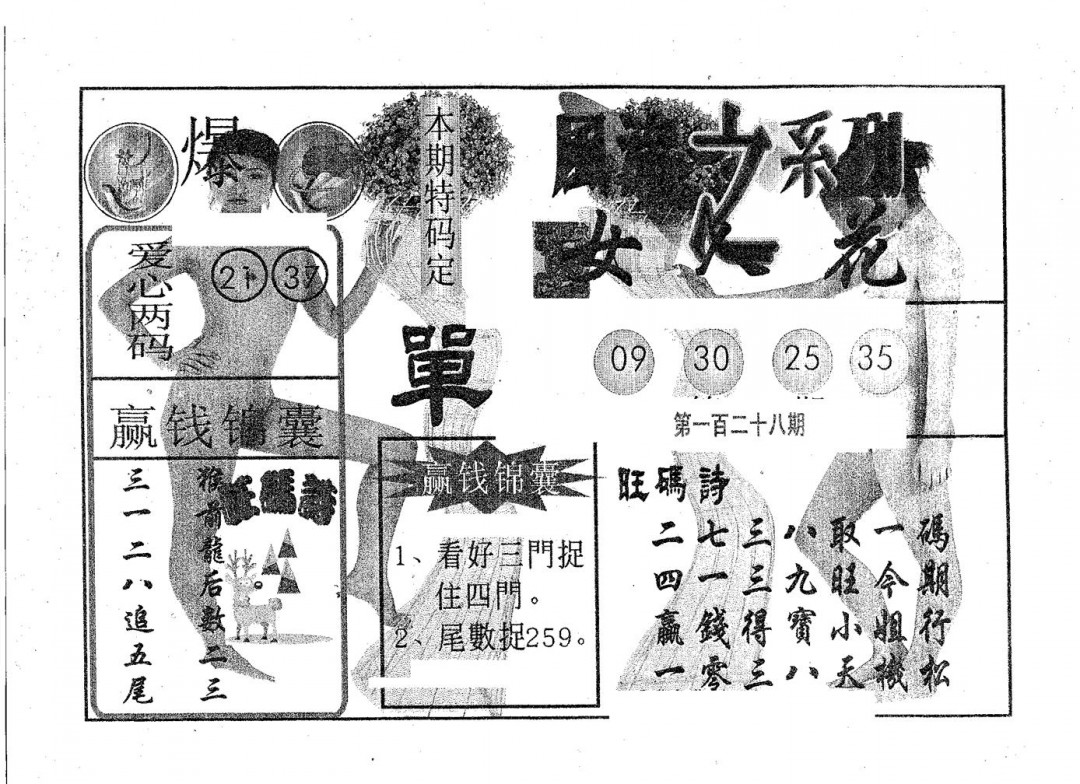 爆
爱心两码
21 37
赢钱锦囊
猴前龍后數二三
三一二八追五尾
旺碼詩
本期特码定
單
赢钱锦囊
1、看好三門捉
住四門。
2、尾數捉259。
之系列
女人花
09 30 25 35
第一百二十八期
旺碼詩
二七三八取一碼
四一三九旺今期
贏錢得寶小姐行
一零三八天機松